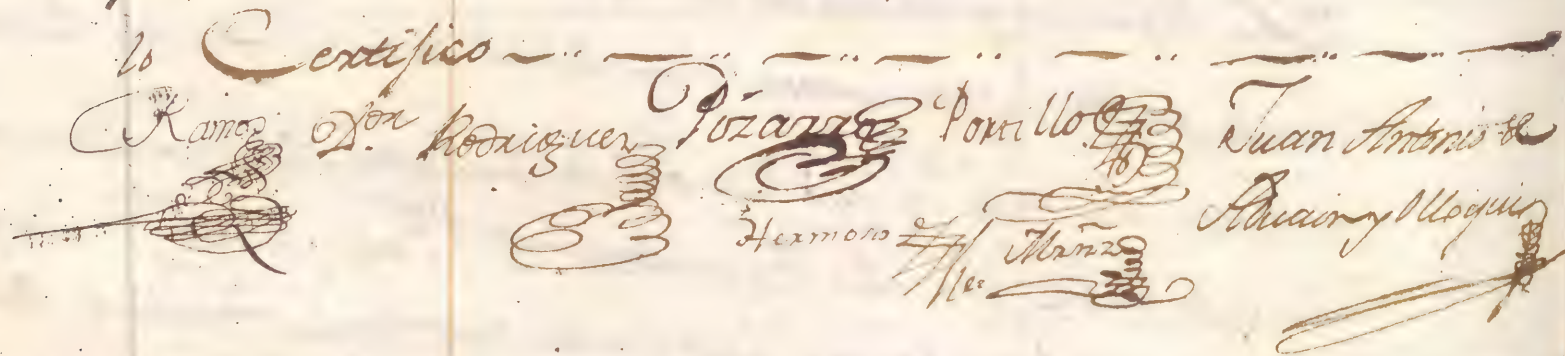 lo Certifico
Ramos D.ⁿ Rodriguez Pizarro Portillo Juan Antonio de
Hermoso Mrñz Aduain y Olloqui